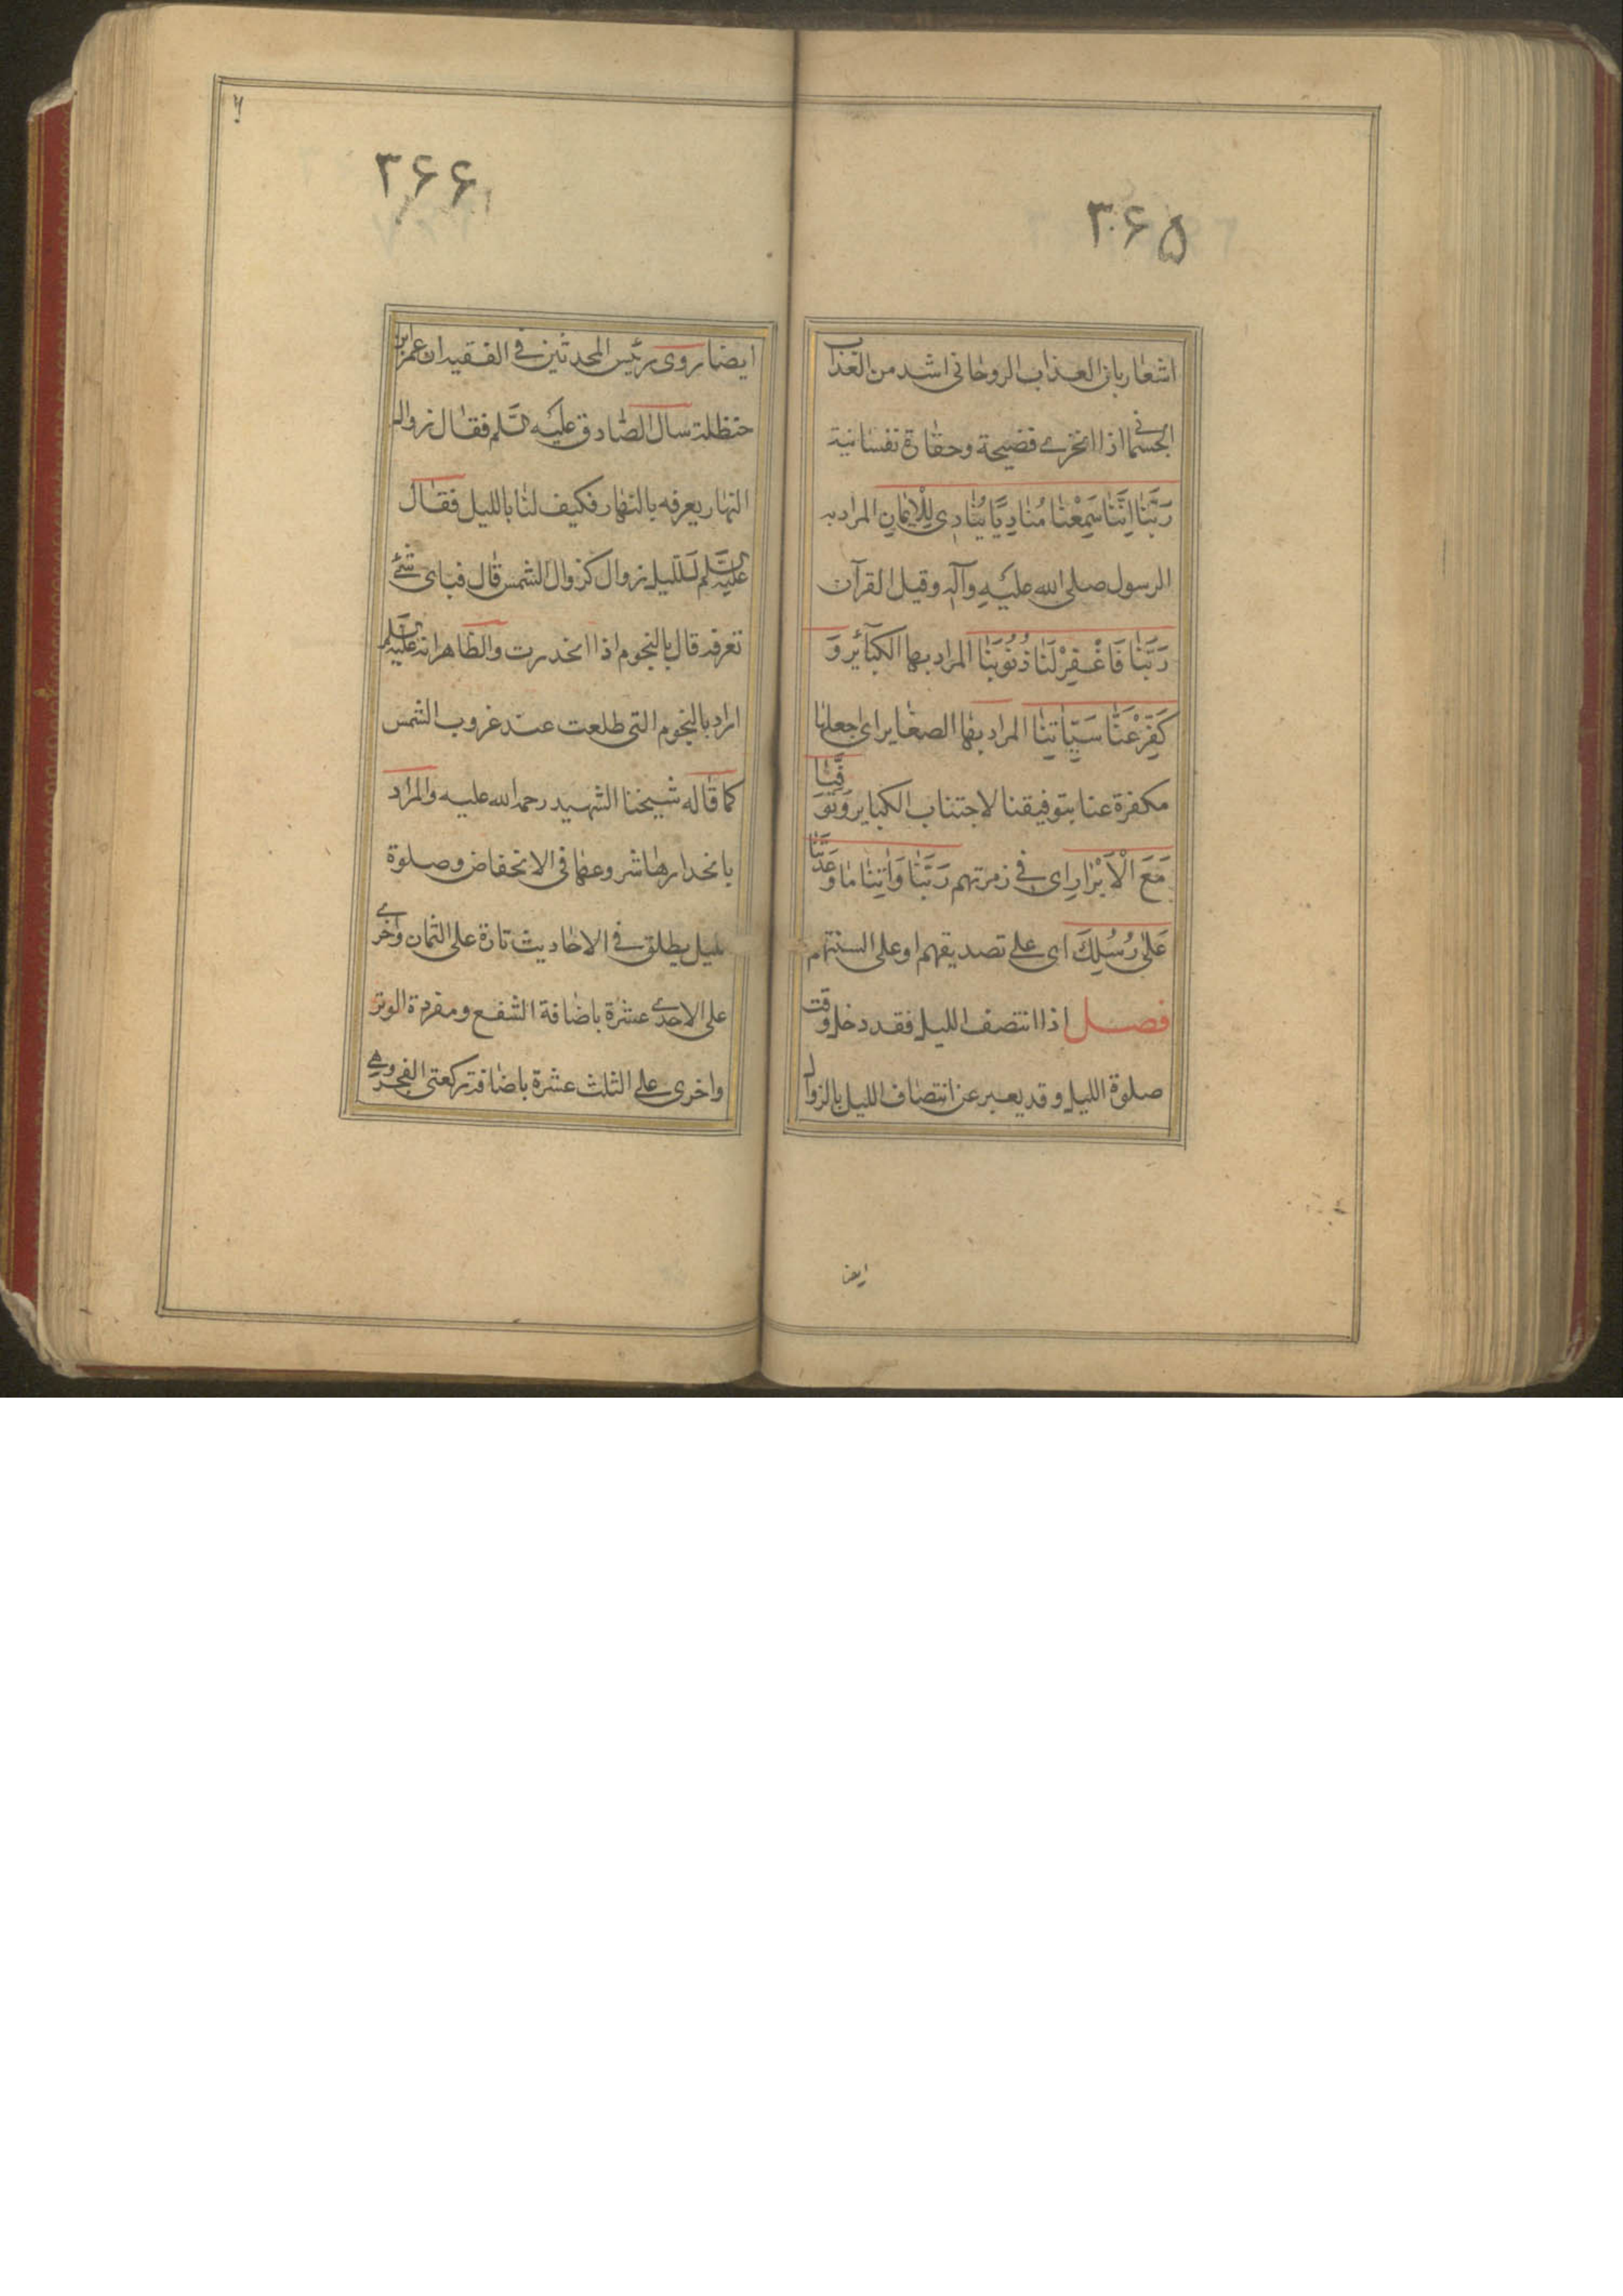 ۳۶۵
اشعار بان العذاب الروحانی اشد من العذاب
الجسمانی اذ الخزی فضیحة وحقارة نفسانیة
رَبَّنَا اِنَّنَا سَمِعْنَا مُنَادِیًا یُنَادِی لِلْاِیمَانِ المراد به
الرسول صلی الله علیه وآله وقیل القرآن
رَبَّنَا فَاغْفِرْ لَنَا ذُنُوبَنَا المراد بها الکبآئر وَ
کَفِّرْ عَنَّا سَیِّاٰتِنَا المراد بها الصغایر ای اجعلها
مکفرة عنا بتوفیقنا لاجتناب الکبایر وَتَوَفَّنَا
مَعَ الْاَبْرَارِ ای فی زمرتهم رَبَّنَا وَاٰتِنَا مَا وَعَدْتَنَا
عَلٰی رُسُلِکَ ای علی تصدیقهم او علی السنتهم
فصل اذا انتصف اللیل فقد دخل وقت
صلوة اللیل وقد یعبر عن انتصاف اللیل بالزوال
ایضا
۳۶۶
ایضا روی رئیس المحدثین فی الفقیه ان عمر بن
حنظلة سال الصادق علیه السلم فقال زوال
النهار یعرفه بالنهار فکیف لنا باللیل فقال
علیه السلم للیل زوال کزوال الشمس قال فبای شئ
تعرفه قال بالنجوم اذا انحدرت والظاهر انه علیه السلم
اراد بالنجوم التی طلعت عند غروب الشمس
کما قاله شیخنا الشهید رحمه الله علیه والمراد
بانحدارها شروعها فی الانخفاض وصلوة
اللیل یطلق فی الاحادیث تارة علی الثمان واخری
علی الاحدی عشرة باضافة الشفع ومفردة الوتر
واخری علی الثلث عشرة باضافة رکعتی الفجر وهی